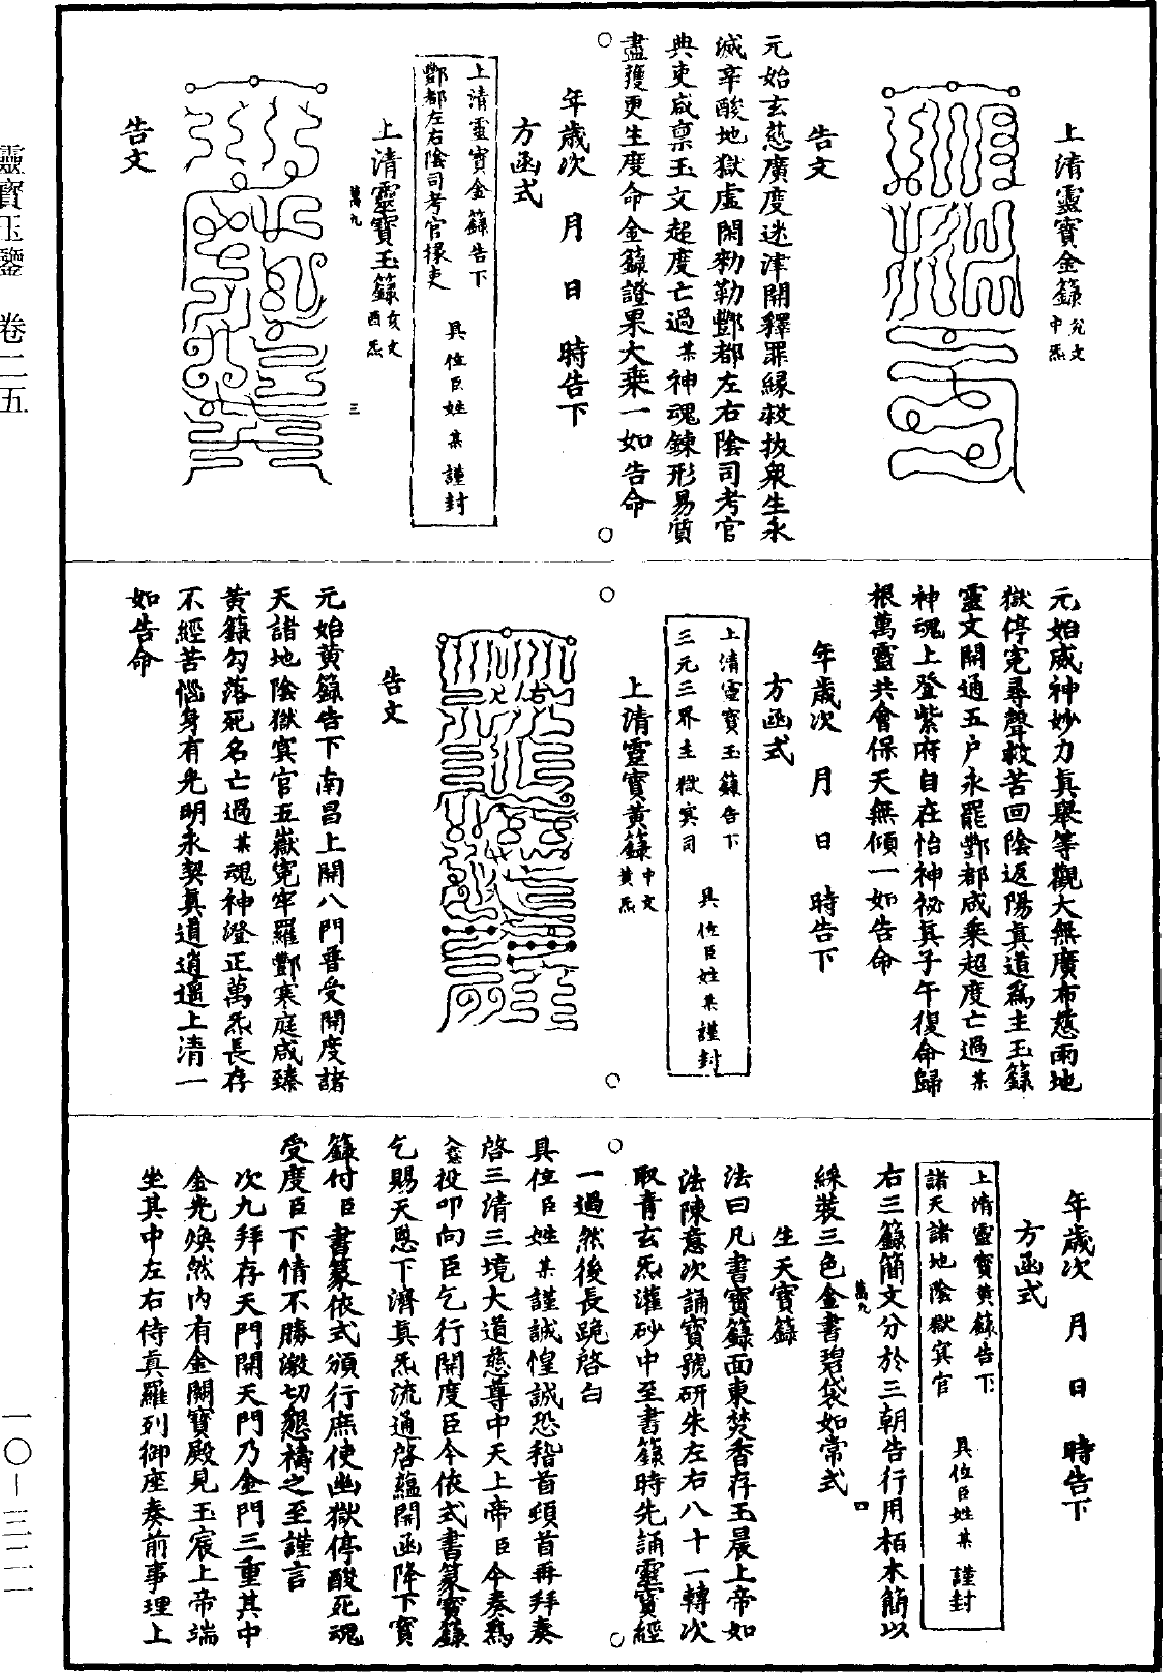 上清靈寶金籙兌文中炁
告文
元始玄慈廣度迷津開釋罪緣救拔衆生永
滅辛酸地獄虛閑勑勒酆都左右陰司考官
典吏咸禀玉文超度亡過某神魂鍊形易質
盡獲更生度命金籙證果大乘一如告命
年歲次 月 日 時告下
方函式
上清靈寶金籙告下
酆都左右陰司考官掾吏 具位臣姓某謹封
上清靈寶玉籙亥文酉炁
萬九 三
告文
元始威神妙力眞舉等觀大無廣布慈雨地
獄停寃尋聲救苦回陰返陽眞道爲主玉籙
靈文開通五户永罷酆都咸乘超度亡過某
神魂上登紫府自在怡神祕眞子午復命歸
根萬靈共會保天無傾一如告命
年歲次 月 日 時告下
方函式
上清靈寶玉籙告下
三元三界主獄寞司 具位臣姓某謹封
上清靈寶黄籙中文黄炁
告文
元始黄籙告下南昌上開八門普受開度諸
天諸地陰獄寞官五嶽寃牢羅酆寒庭咸臻
黄籙勾落死名亡過某魂神澄正萬炁長存
不經苦惱身有光明永契眞道逍遥上清一
如告命
年歲次 月 日 時告下
方函式
上清靈寶黄籙告下
諸天諸地陰獄寞官 具位臣姓某謹封
右三籙簡文分於三朝告行用栢木簡以
綵裝三色金書碧袋如常式
萬九 四
生天寶籙
法曰凡書寶籙面東焚香存玉晨上帝如
法陳意次誦寶號研朱左右八十一轉次
取青玄炁灌砂中至書籙時先誦靈寶經
一過然後長跪啓白
具位臣姓某謹誠惶誠恐稽首頓首再拜奏
啓三清三境大道慈尊中天上帝臣今奏爲
入意投叩向臣乞行開度臣今依式書篆寶籙
乞賜天恩下濟眞炁流通啓蘊開函降下寶
籙付臣書篆依式頒行庶使幽獄停酸死魂
受度臣下情不勝激切懇禱之至謹言
次九拜存天門開天門乃金門三重其中
金光煥然内有金闕寶殿見玉宸上帝端
坐其中左右侍眞羅列御座奏前事理上
靈寶玉鑒 卷二五
一〇—三二二